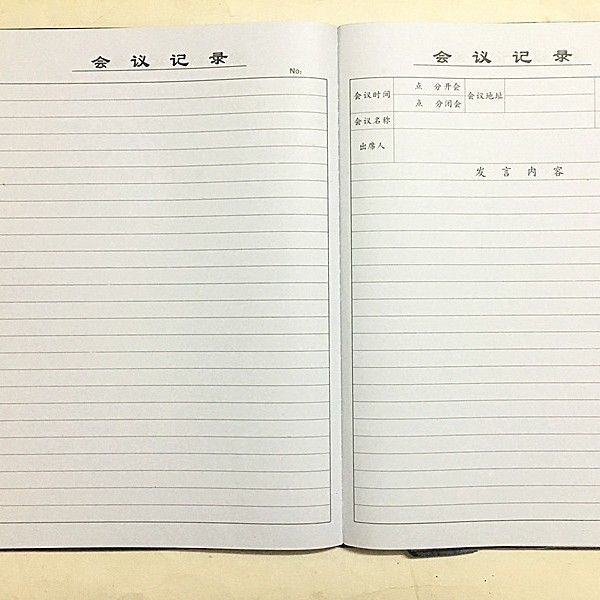 会议记录
No:
会议记录
会议时间 点 分开会 会议地址
点 分闭会
会议名称
出席人
发言内容